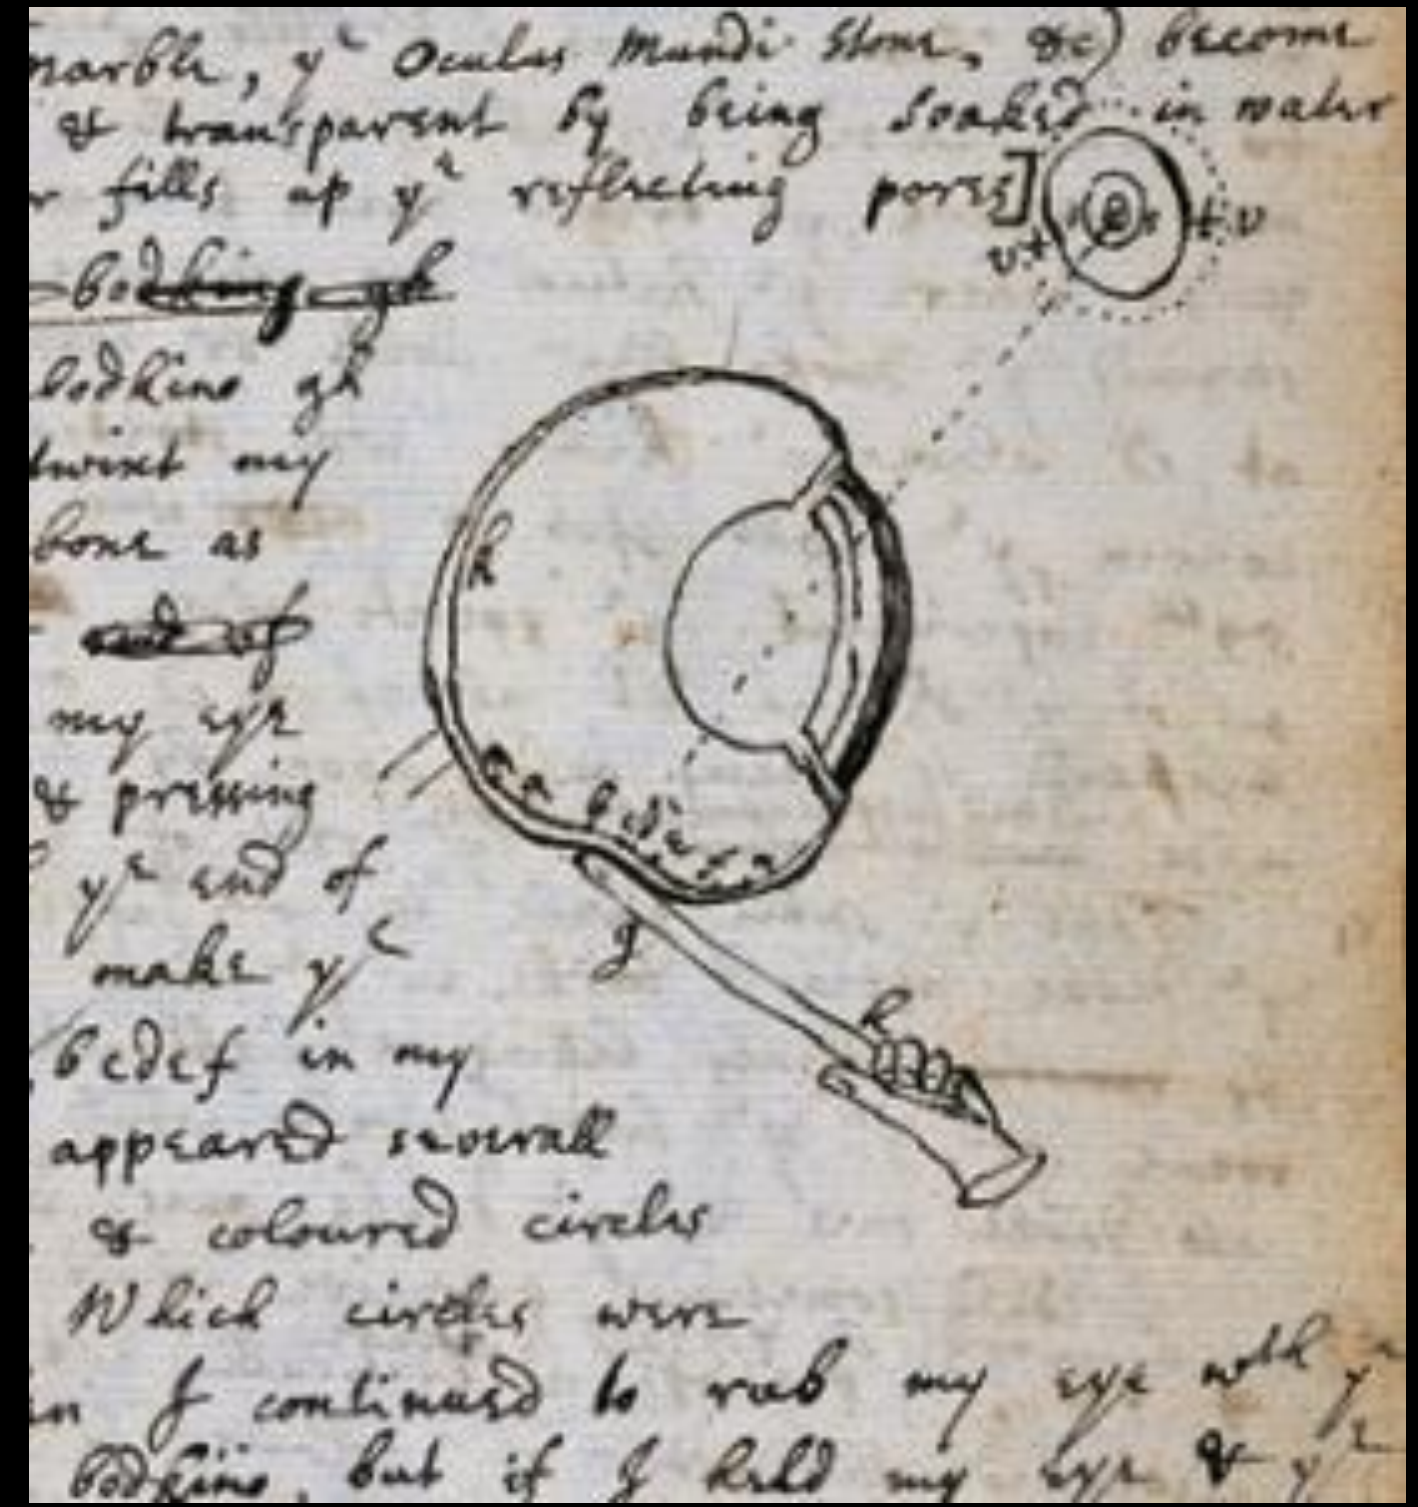 marble, yᵉ Oculus Mundi stone, &c) become
& transparent by being soaked in water
r fills up yᵉ reflecting pores]
bodking gh
bodkine gh
twixt my
bone as
end of
my eye
& pressing
yᵉ end of
make yᵉ
bcdef in my
appeared severall
& coloured circles
Which circles were
en I continued to rub my eye wᵗʰ yᵉ
bodkine, but if I held my eye & yᵉ
g
h